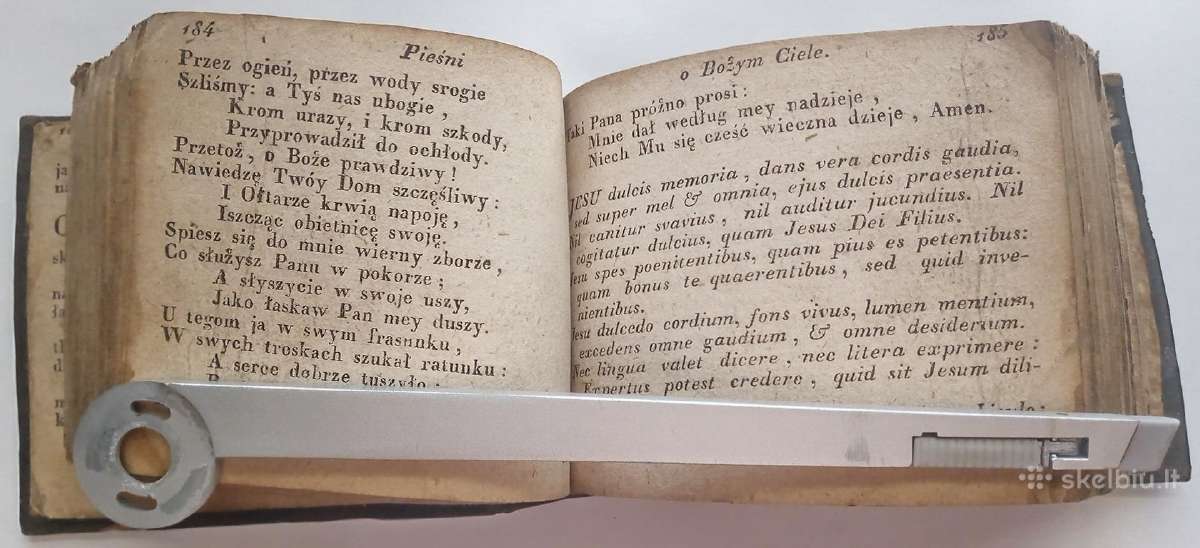 184
Pieśni
Przez ogień, przez wody srogie
Szliśmy: a Tyś nas ubogie,
Krom urazy, i krom szkody,
Przyprowadził do ochłody.
Przetoż, o Boże prawdziwy!
Nawiedzę Twóy Dom szczęśliwy:
I Ołtarze krwią napoję,
Iszcząc obietnicę swoję.
Spiesz się do mnie wierny zborze,
Co służysz Panu w pokorze;
A słyszycie w swoje uszy,
Jako łaskaw Pan mey duszy.
U tegom ja w swym frasunku,
W swych troskach szukał ratunku:
A serce dobrze tuszyło:
185
o Bożym Ciele.
Pana próżno prosi:
Mnie dał według mey nadzieje,
Niech Mu się cześć wieczna dzieje, Amen.
JESU dulcis memoria, dans vera cordis gaudia,
sed super mel & omnia, ejus dulcis praesentia.
Nil canitur svavius, nil auditur jucundius. Nil
cogitatur dulcius, quam Jesus Dei Filius.
Jesu spes poenitentibus, quam pius es petentibus:
quam bonus te quaerentibus, sed quid inve-
nientibus.
Jesu dulcedo cordium, fons vivus, lumen mentium,
excedens omne gaudium, & omne desiderium.
Nec lingua valet dicere, nec litera exprimere:
Expertus potest credere, quid sit Jesum dili-
skelbiu.lt